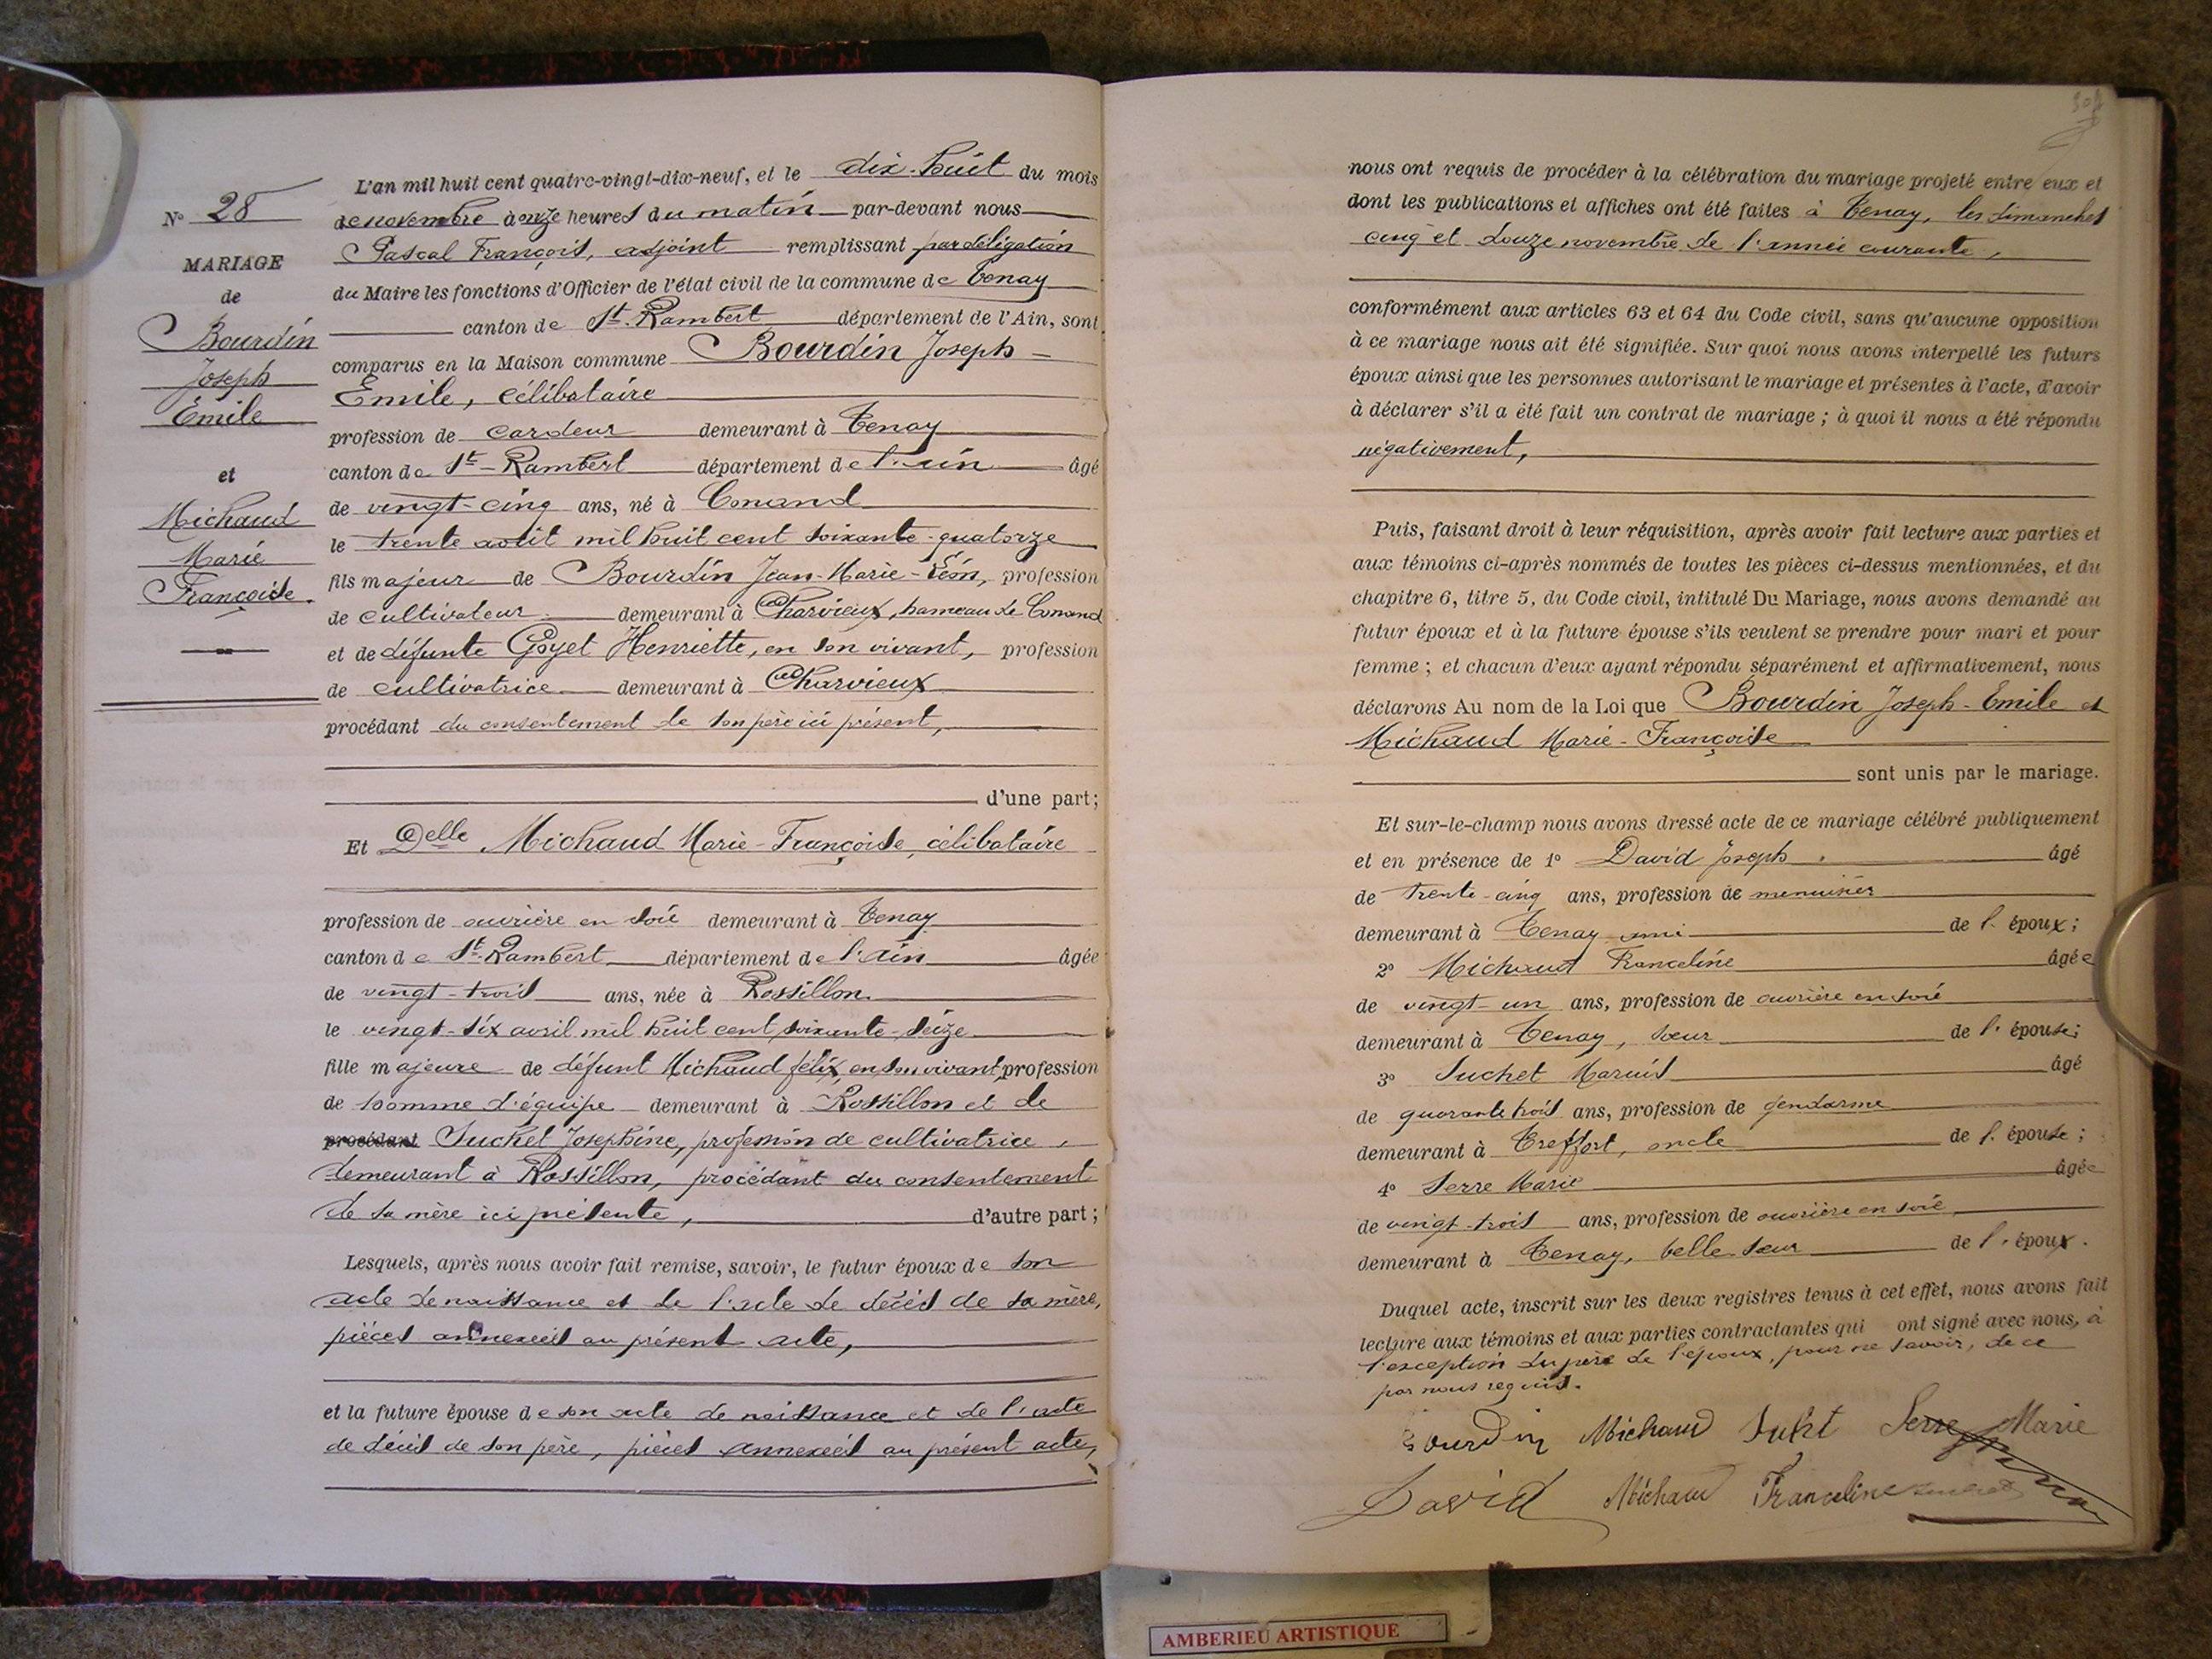 N° 28
MARIAGE
de
Bourdin
Joseph
Émile
et
Michaud
Marie
Françoise.
L'an mil huit cent quatre-vingt-dix-neuf, et le dix-huit du mois
de novembre à onze heures du matin par-devant nous
Pascal François, adjoint remplissant par déligation
du Maire les fonctions d'Officier de l'état civil de la commune de Tenay
canton de St-Rambert département de l'Ain, sont
comparus en la Maison commune Bourdin Joseph-
Émile, célibataire
profession de cardeur demeurant à Tenay
canton de St-Rambert département de l'ain âgé
de vingt-cinq ans, né à Conand
le trente août mil huit cent soixante-quatorze
fils majeur de Bourdin Jean-Marie-Léon, profession
de cultivateur demeurant à Charvieux, hameau de Conand
et de défunte Goyet Henriette, en son vivant, profession
de cultivatrice demeurant à Charvieux
procédant du consentement de son père ici présent,
d'une part;
Et Delle Michaud Marie-Françoise, célibataire
profession de ouvrière en soie demeurant à Tenay
canton de St-Rambert département de l'Ain âgée
de vingt-trois ans, née à Rossillon
le vingt-six avril mil huit cent soixante-seize
fille majeure de défunt Michaud félix, en son vivant, profession
de homme d'équipe demeurant à Rossillon et de
procédant Suchet Joséphine, profession de cultivatrice,
demeurant à Rossillon, procédant du consentement
de sa mère ici présente, d'autre part;
Lesquels, après nous avoir fait remise, savoir, le futur époux de son
acte de naissance et de l'acte de décès de sa mère,
pièces annexées au présent acte,
et la future épouse de son acte de naissance et de l'acte
de décès de son père, pièces annexées au présent acte,
nous ont requis de procéder à la célébration du mariage projeté entre eux et
dont les publications et affiches ont été faites à Tenay, les dimanches
cinq et douze novembre de l'année courante,
conformément aux articles 63 et 64 du Code civil, sans qu'aucune opposition
à ce mariage nous ait été signifiée. Sur quoi nous avons interpellé les futurs
époux ainsi que les personnes autorisant le mariage et présentes à l'acte, d'avoir
à déclarer s'il a été fait un contrat de mariage; à quoi il nous a été répondu
négativement,
Puis, faisant droit à leur réquisition, après avoir fait lecture aux parties et
aux témoins ci-après nommés de toutes les pièces ci-dessus mentionnées, et du
chapitre 6, titre 5, du Code civil, intitulé Du Mariage, nous avons demandé au
futur époux et à la future épouse s'ils veulent se prendre pour mari et pour
femme; et chacun d'eux ayant répondu séparément et affirmativement, nous
déclarons Au nom de la Loi que Bourdin Joseph-Emile et
Michaud Marie-Françoise
sont unis par le mariage.
Et sur-le-champ nous avons dressé acte de ce mariage célébré publiquement
et en présence de 1° David Joseph âgé
de trente-cinq ans, profession de menuisier
demeurant à Tenay ami de l'époux;
2° Michaud Franceline âgée
de vingt-un ans, profession de ouvrière en soie
demeurant à Tenay, sœur de l'épouse;
3° Suchet Marius âgé
de quarante trois ans, profession de gendarme
demeurant à Treffort, oncle de l'épouse;
4° Serre Marie âgée
de vingt-trois ans, profession de ouvrière en soie
demeurant à Tenay, belle-sœur de l'époux.
Duquel acte, inscrit sur les deux registres tenus à cet effet, nous avons fait
lecture aux témoins et aux parties contractantes qui ont signé avec nous, à
l'exception du père de l'époux, pour ne savoir, de ce
par nous requis.
Bourdin Michaud Serre Marie
David Michaud Franceline
AMBERIEU ARTISTIQUE